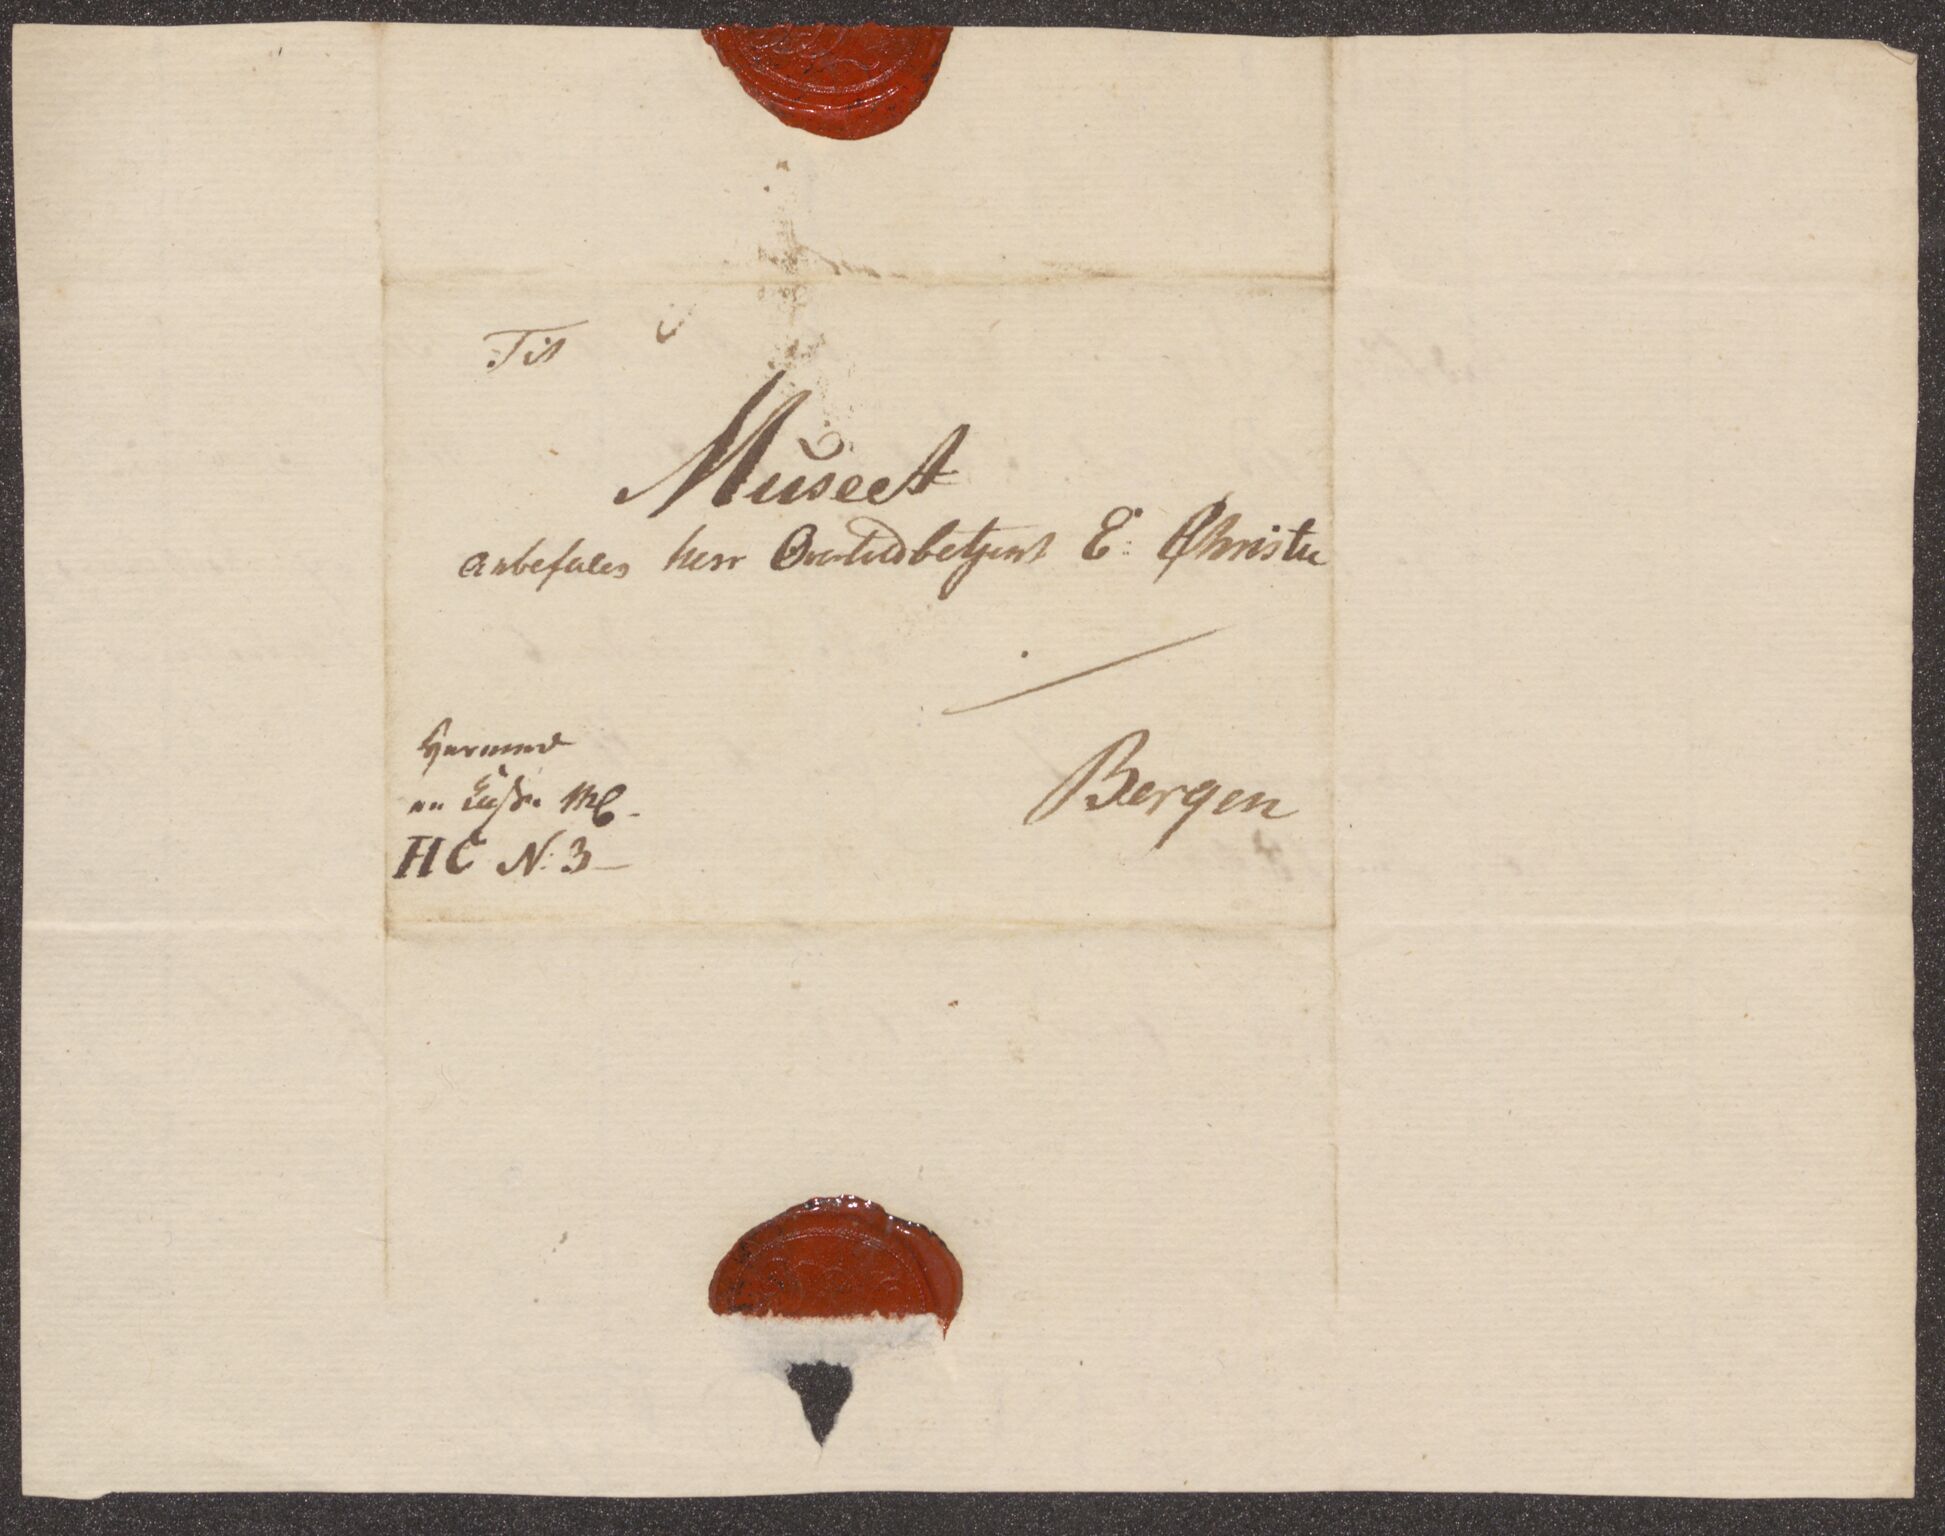 Til
Museet
anbefales herr Overtoldbetjent E: Christie
Bergen
Hermed
en Kasse Mk.
HC N: 3